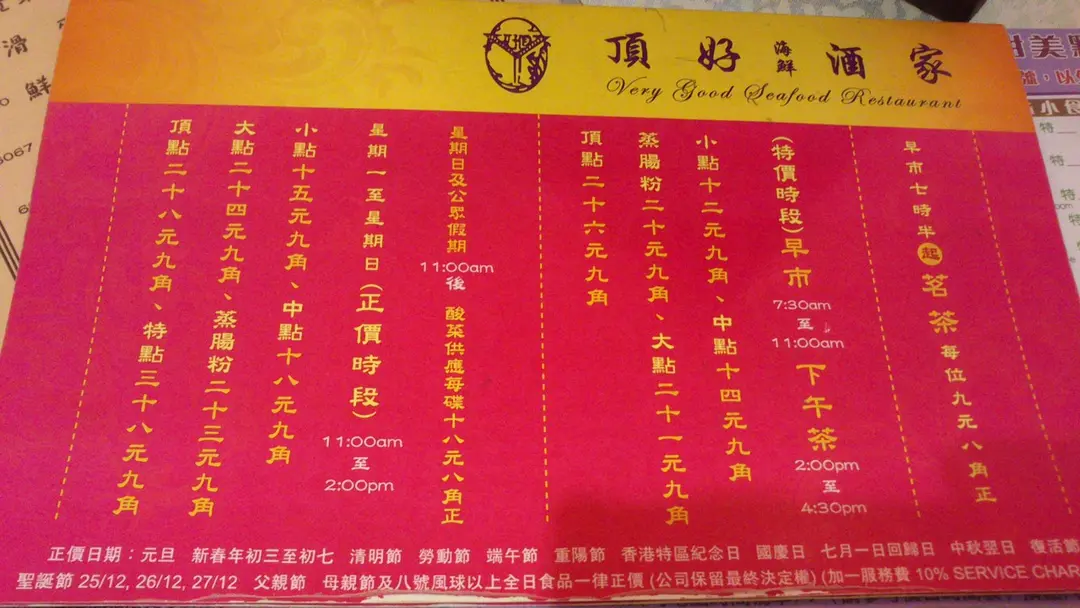 頂好海鮮酒家
Very Good Seafood Restaurant
早市七時半起茗茶每位九元八角正
(特價時段)早市 7:30am至11:00am 下午茶 2:00pm至4:30pm
小點十二元九角、中點十四元九角
蒸腸粉二十元九角、大點二十一元九角
頂點二十六元九角
星期日及公眾假期 11:00am後 酸菜供應每碟十八元八角正
星期一至星期日(正價時段) 11:00am至2:00pm
小點十五元九角、中點十八元九角
大點二十四元九角、蒸腸粉二十三元九角
頂點二十八元九角、特點三十八元九角
正價日期：元旦 新春年初三至初七 清明節 勞動節 端午節 重陽節 香港特區紀念日 國慶日 七月一日回歸日 中秋翌日 復活節
聖誕節 25/12, 26/12, 27/12 父親節 母親節及八號風球以上全日食品一律正價 (公司保留最終決定權) (加一服務費 10% SERVICE CHAR
滑
鮮
3067
美點
小食
特
特
特
特